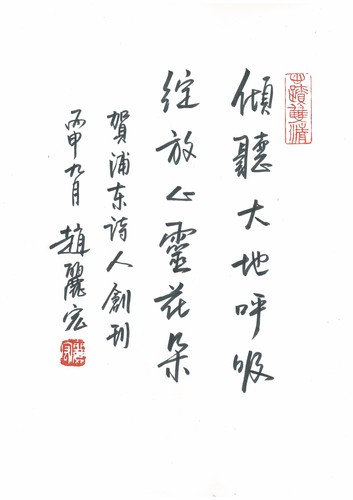 傾聽大地呼吸
綻放心靈花朵
賀浦东诗人創刊
丙申九月
趙麗宏